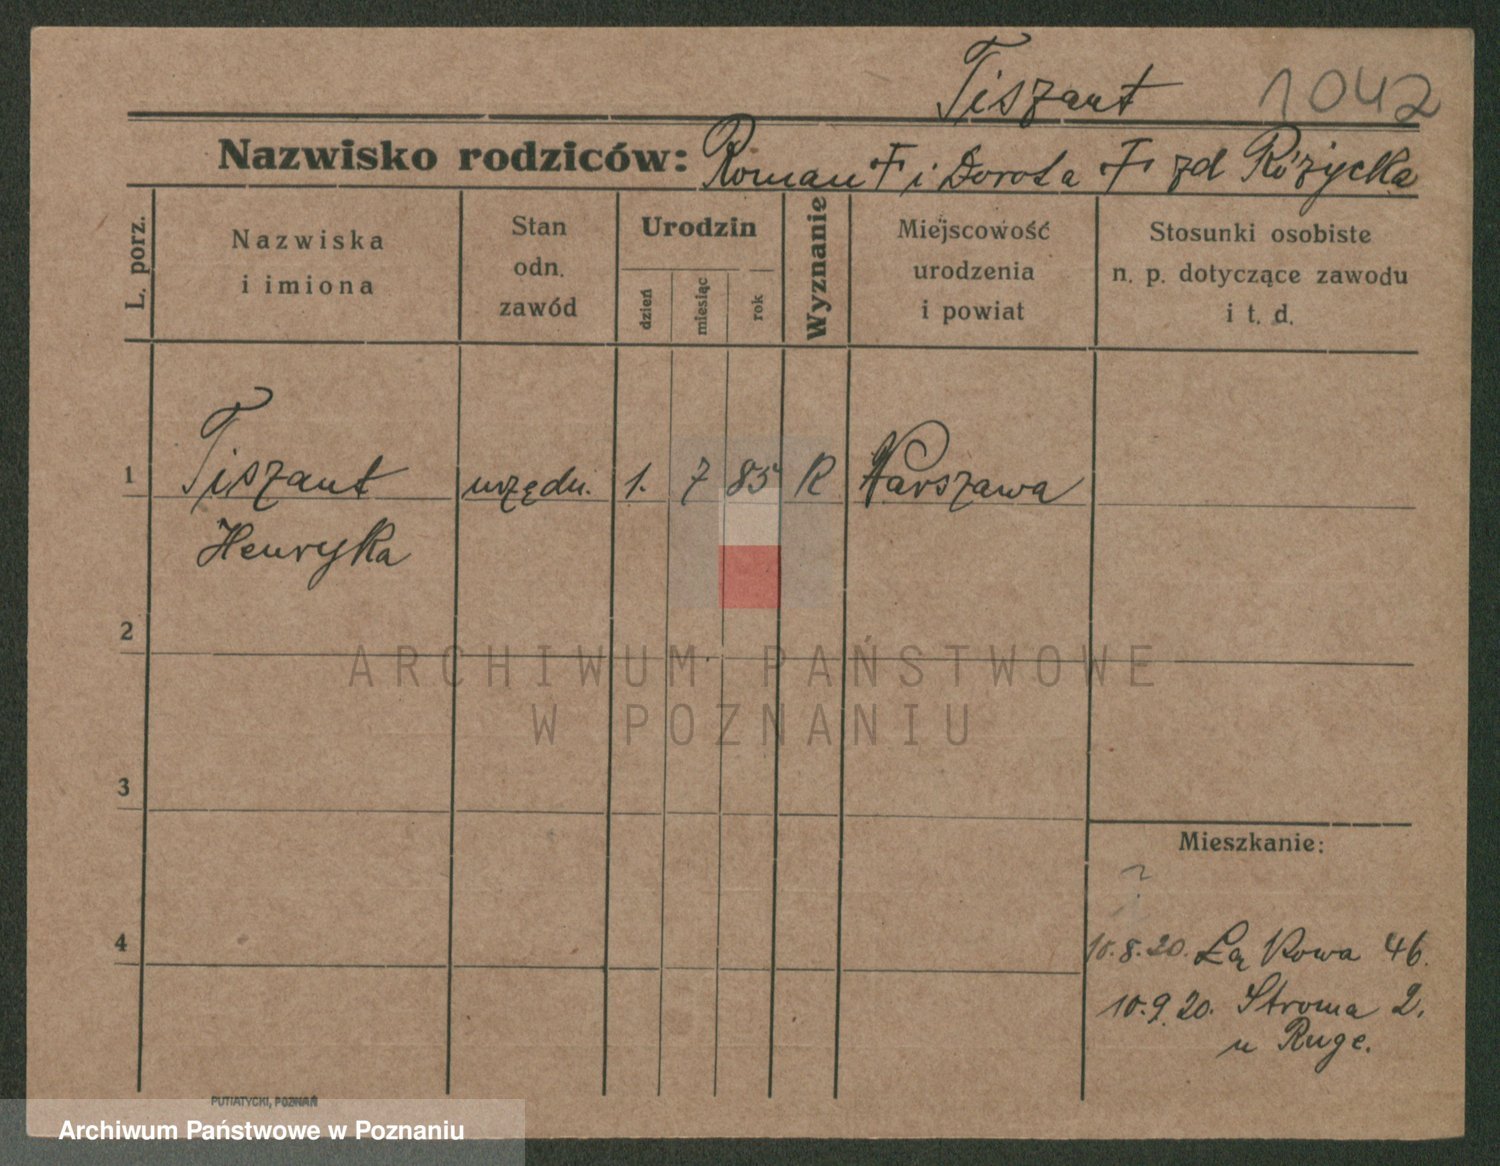 Tiszant 1042
Nazwisko rodziców: Roman F i Dorota F zd Różycka
L. porz.
Nazwiska
i imiona
Stan
odn.
zawód
Urodzin
dzień
miesiąc
rok
Wyznanie
Miejscowość
urodzenia
i powiat
Stosunki osobiste
n. p. dotyczące zawodu
i t. d.
1 Tiszant urzędn. 1. 7 85 R Warszawa
Henryka
2
ARCHIWUM PAŃSTWOWE
W POZNANIU
3
Mieszkanie:
4
10.8.20. Łąkowa 46.
10.9.20. Stroma 2.
u Ruge.
PUTIATYCKI, POZNAŃ
Archiwum Państwowe w Poznaniu